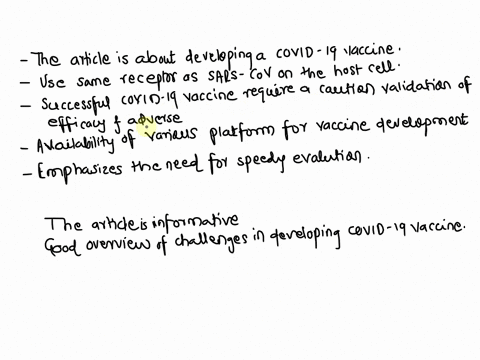 - The article is about developing a COVID-19 vaccine.
- Use same receptor as SARS-CoV on the host cell.
- Successful COVID-19 vaccine require a caution validation of
efficacy & adverse
- Availability of various platform for vaccine development
- Emphasizes the need for speedy evalution.
The article is informative
Good overview of challenges in developing COVID-19 vaccine.